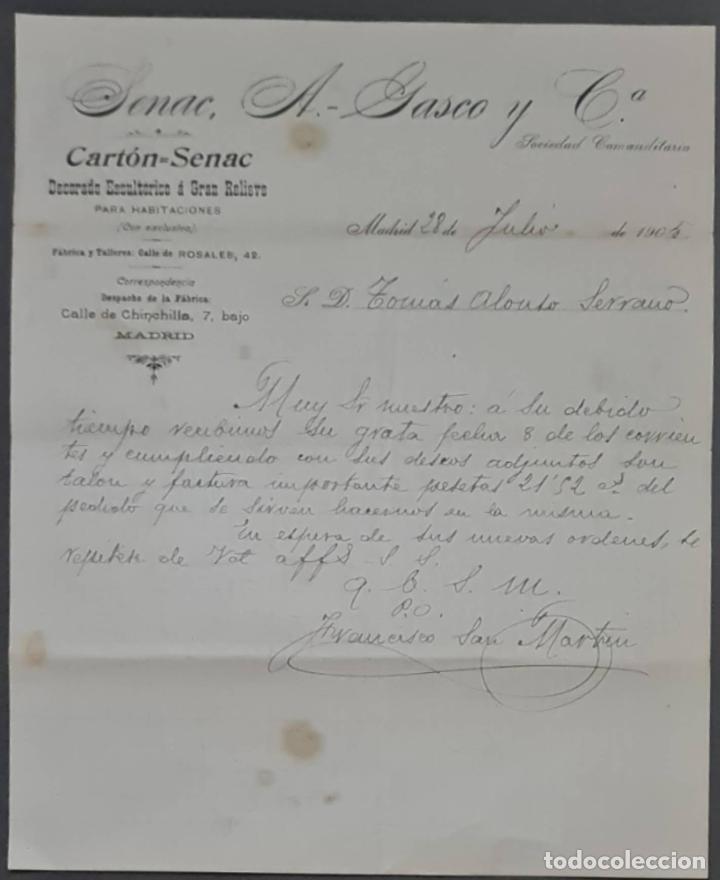 Senac, A.-Gasco y C.ª
Sociedad Comanditaria
Cartón-Senac
Decorado Escultórico á Gran Relieve
PARA HABITACIONES
(Con exclusiva)
Fábrica y Talleres: Calle de ROSALES, 42.
Correspondencia
Despacho de la Fábrica:
Calle de Chinchilla, 7, bajo
MADRID
Madrid 28 de Julio de 1905
S. D. Tomás Alonso Serrano.
Muy Sr nuestro: á su debido
tiempo recibimos su grata fecha 8 de los corrien
tes y cumpliendo con sus deseos adjuntos son
talon y factura importante pesetas 21'52 del
pedido que se sirven hacernos en la misma.
En espera de sus nuevas ordenes, se
repiten de Vd affs S S.
q. b. s. m.
P.O.
Francisco San Martin
todocoleccion